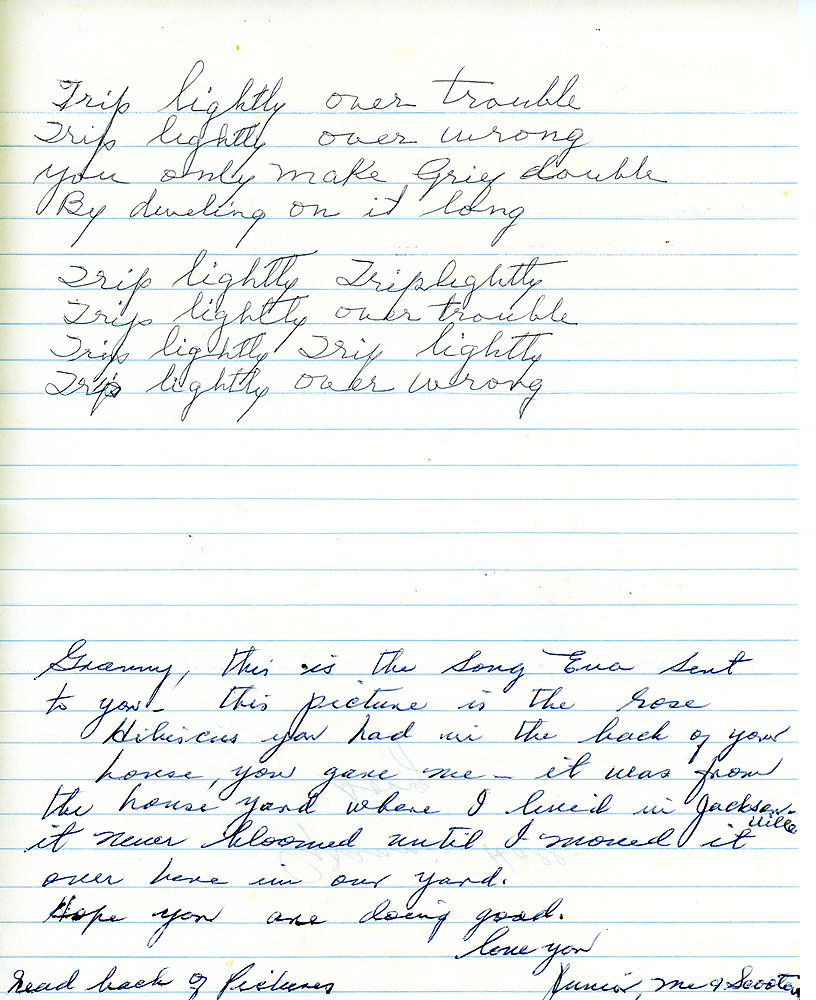 Trip lightly over trouble
Trip lightly over wrong
you only make Grief double
By dweling on it long
Trip lightly Trip lightly
Trip lightly over trouble
Trip lightly Trip lightly
Trip lightly over wrong
Granny, this is the song Eva sent
to you - this picture is the rose
Hibiscus you had in the back of your
house, you gave me - it was from
the house yard where I lived in Jackson-
ville
it never bloomed until I moved it
over here in our yard.
Hope you are doing good.
love you
Junior, me & Scooter
Read back of Pictures